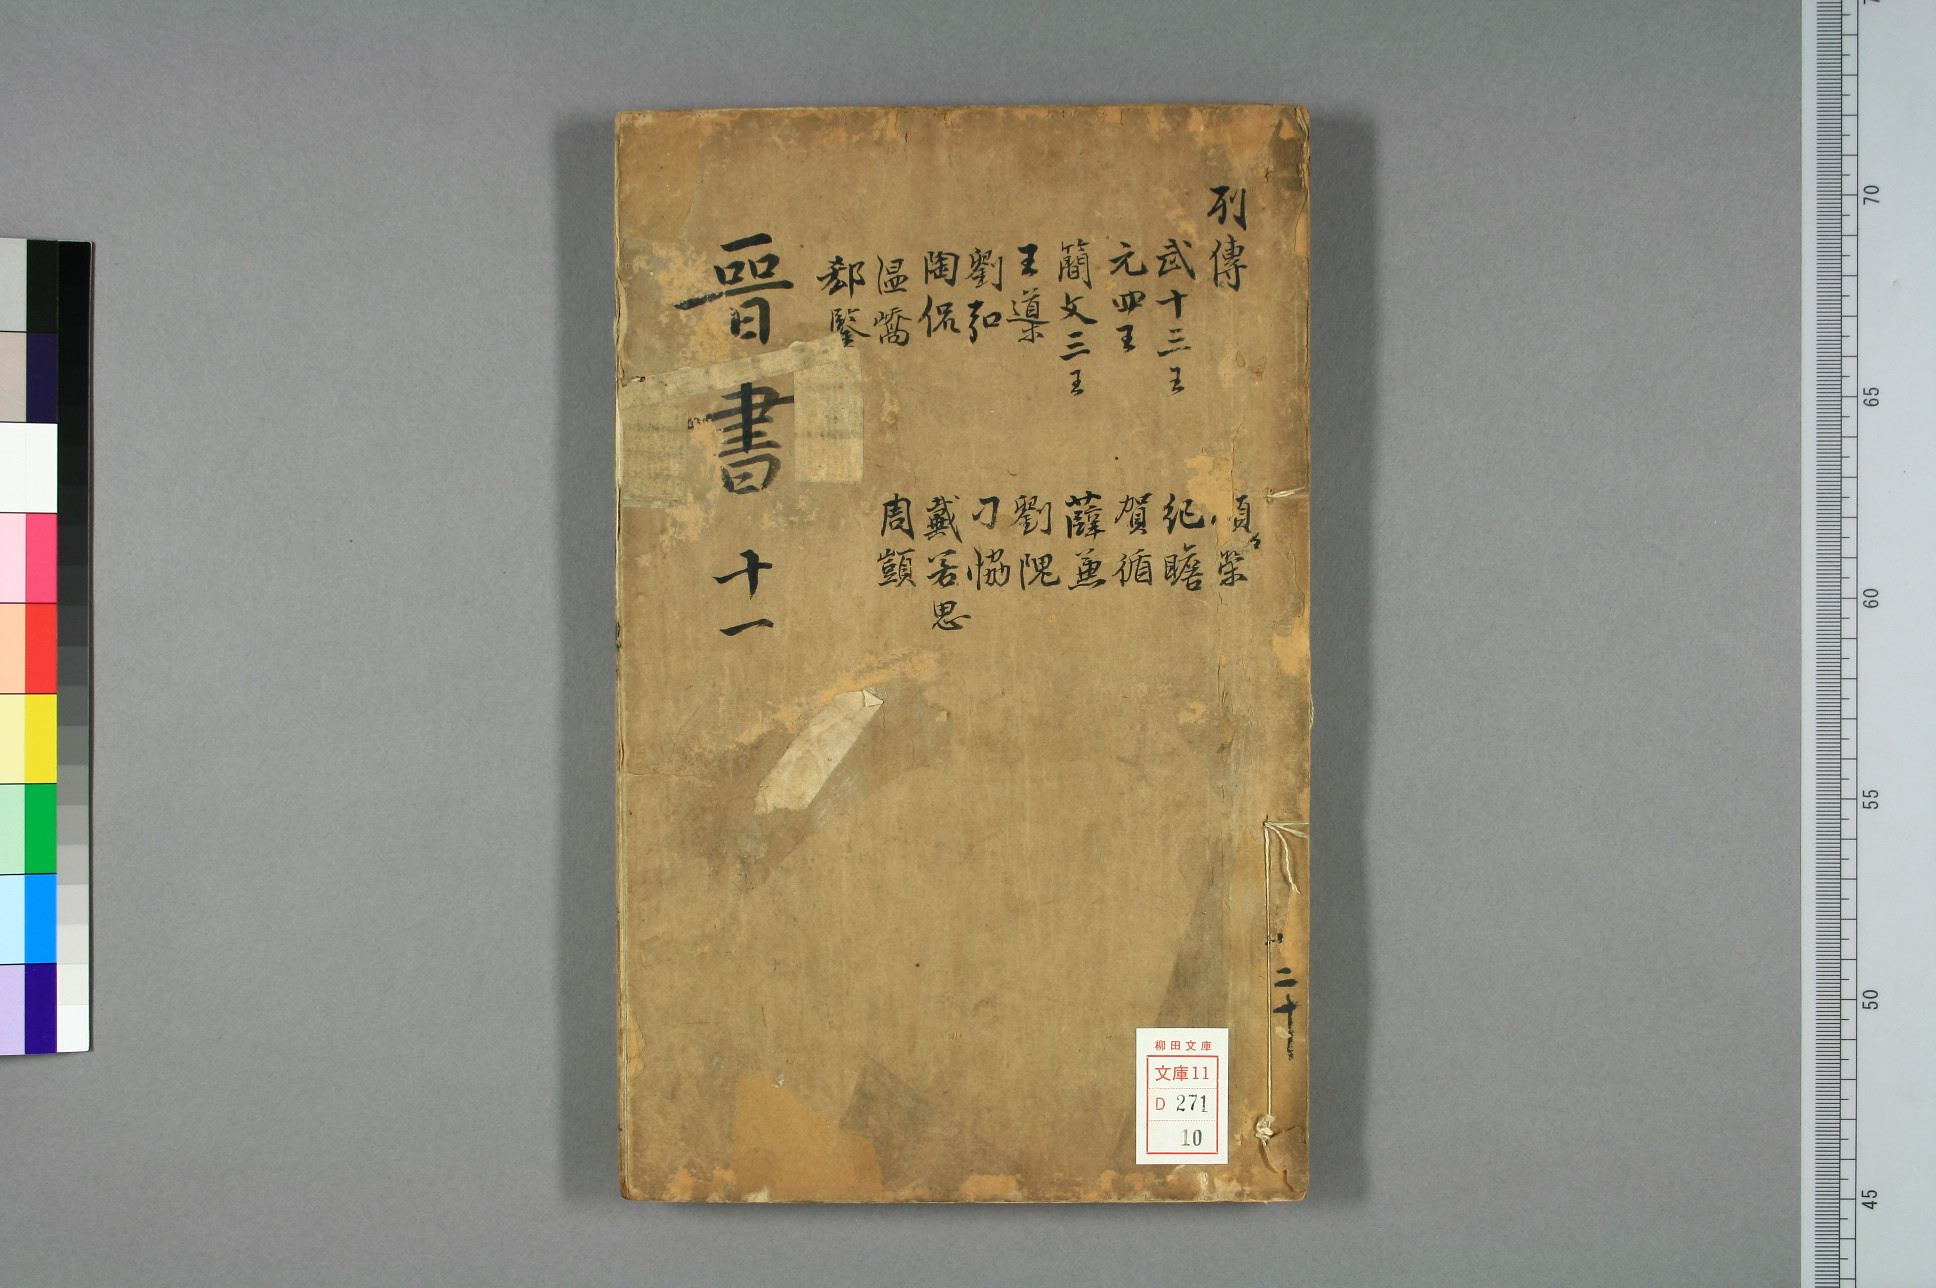 列傳
武十三王
元四王
簡文三王
王導
劉弘
陶侃
温嶠
郗鑒
顧榮
紀瞻
賀循
薛兼
劉隗
刁協
戴若思
周顗
晉書 十一
二十
柳田文庫
文庫11
D 271
10
70
65
60
55
50
45